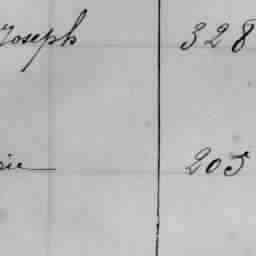 Joseph 328
205